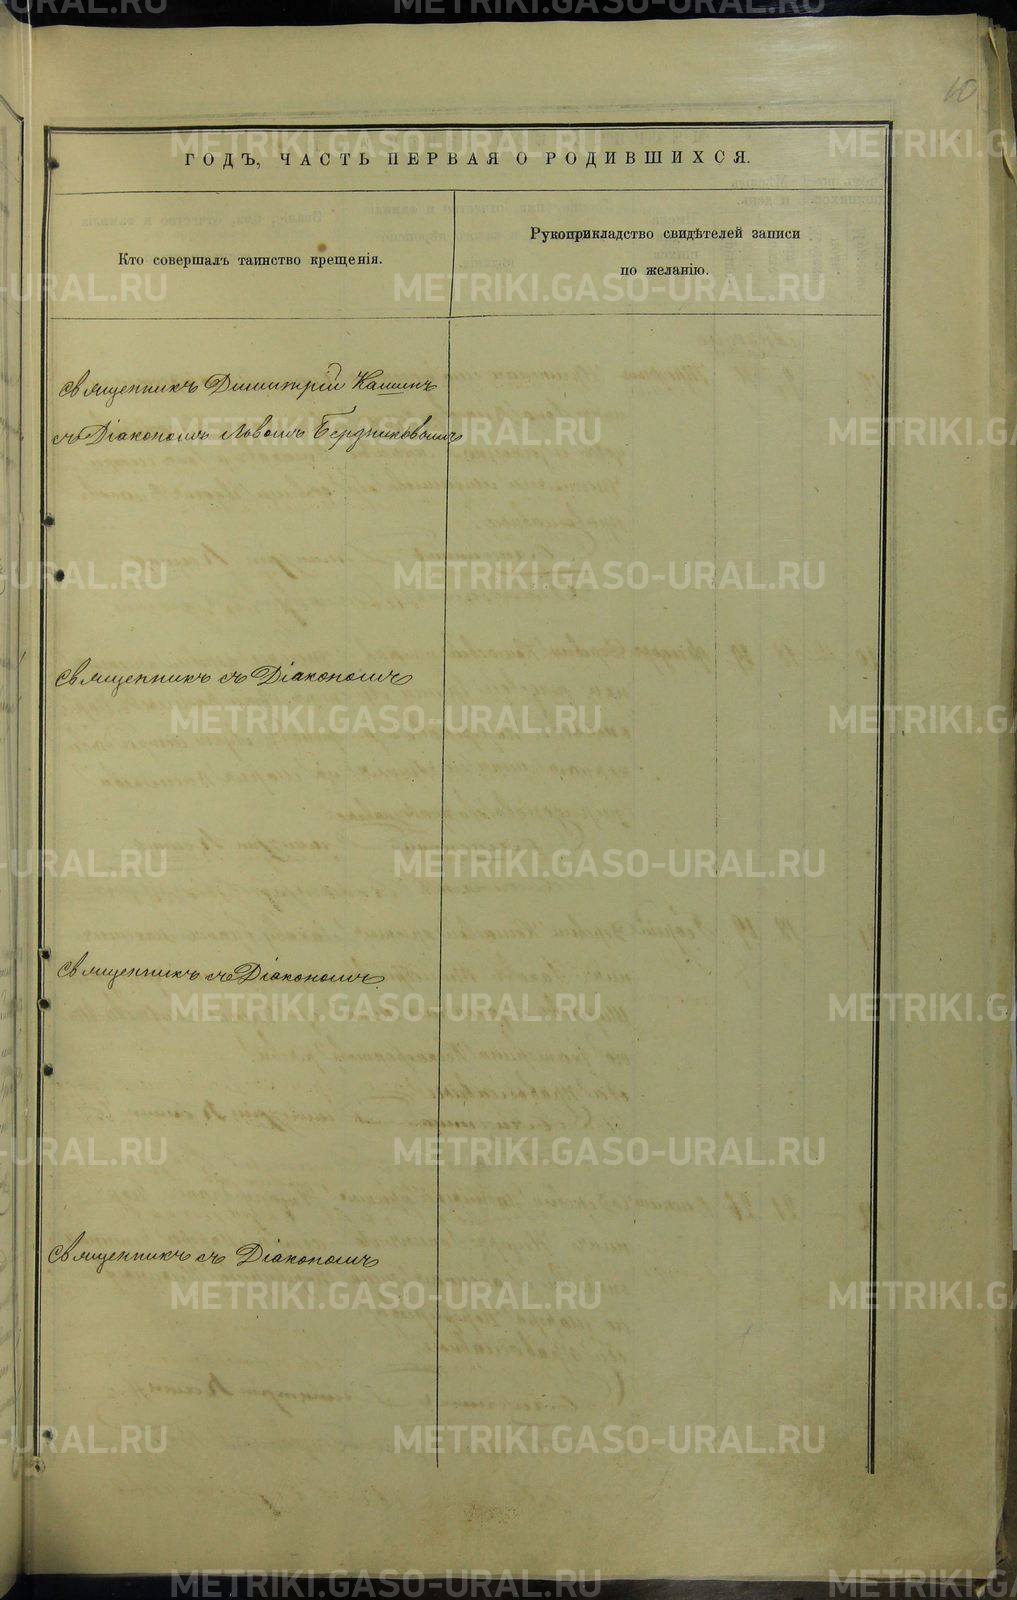 10
ГОДЪ, ЧАСТЬ ПЕРВАЯ О РОДИВШИХСЯ.
Кто совершалъ таинство крещенія.
Рукоприкладство свидѣтелей записи
по желанію.
Священникъ Димитрій Кашинъ
съ Діакономъ Львомъ Бердниковымъ
Священникъ съ Діакономъ
Священникъ съ Діакономъ.
Священникъ съ Діакономъ
METRIKI.GASO-URAL.RU